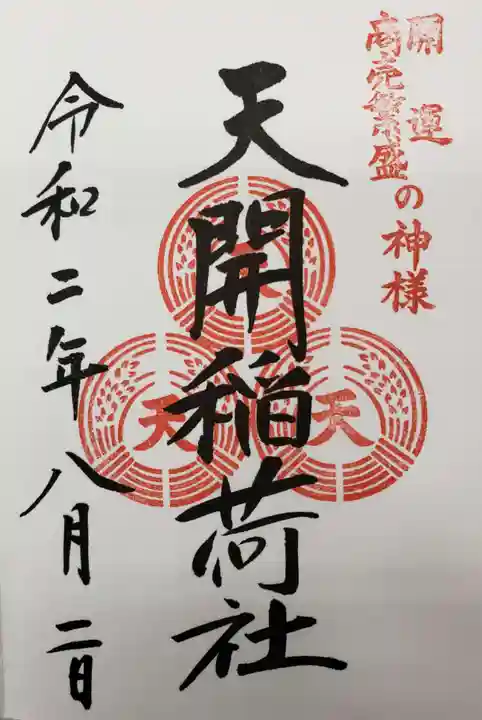 開運
商売繁盛
の神様
天開稲荷社
天
天
令和二年八月二日